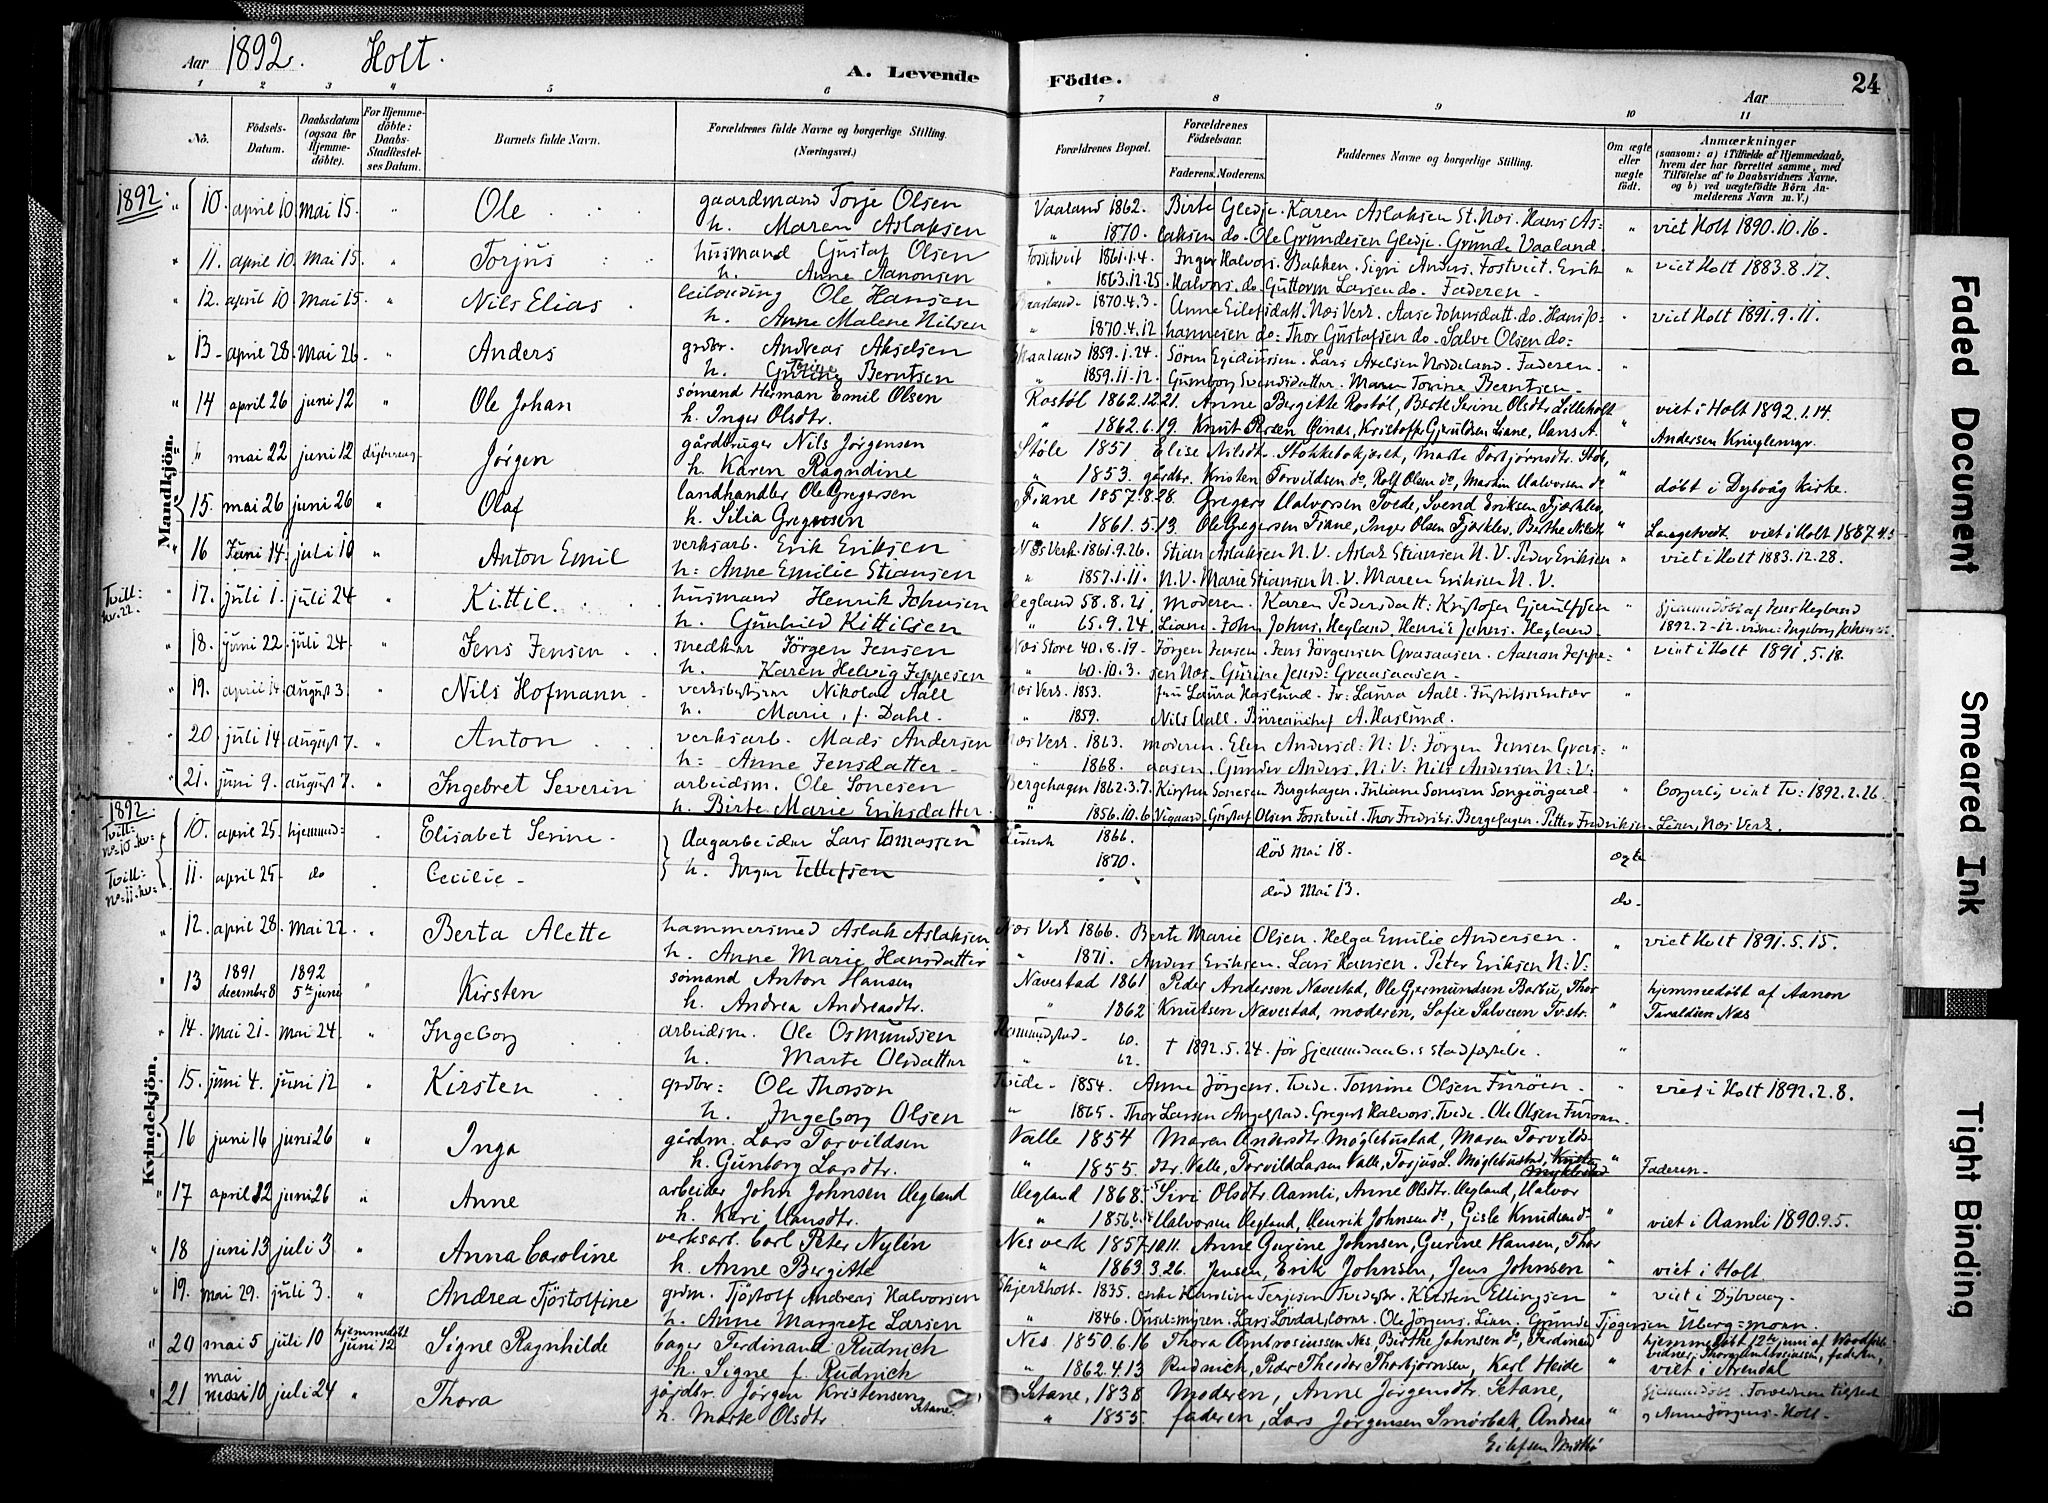 Aar 1892. Holt.
A. Levende Födte.
24
Aar
1 2 3 4 5 6 7 8 9 10 11
No.
Födsels-Datum.
Daabsdatum (ogsaa for Hjemme-döbte).
For Hjemme-döbte: Daabs-Stadfæstel-ses Datum.
Barnets fulde Navn.
Forældrenes fulde Navne og borgerlige Stilling. (Næringsvei.)
Forældrenes Bopæl.
Forældrenes Födselsaar.
Faderens. Moderens.
Faddernes Navne og borgerlige Stilling.
Om ægte eller uægte födt.
Anmærkninger
(saasom: a) i Tilfælde af Hjemmedaab,
hvem der har forrettet samme, med
Tilföielse af to Daabsvidners Navne,
og b) ved uægtefödte Börn An-
melderens Navn m. V.)
1892.
Mandkjön.
10. april 10 Mai 15. " Ole gaardmand Torje Olsen Vaaland 1862. Birte Gledje. Karen Aslaksen St. Næs. Hans As= " viet Holt 1890.10.16.
h. Maren Aslaksen " 1870. laksen do. Ole Grundesen Gledje. Grunde Vaaland.
11. april 10 Mai 15. " Torjus husmand Gustaf Olsen Fossetveit 1861.1.4. Inger Halvors. Bakken. Sigri Anders. Fostveit. Erik " viet Holt 1883.8.17.
h. Anne Aanonsen " 1863.12.25. Halvors. do. Guttorm Larsen do. Faderen
12. april 10 Mai 15. " Nils Elias leilænding Ole Hansen 1870.4.3. Anne Eilefsdatt. Næs Verk. Aase Johnsdatt. do. Hans Jo= " viet Holt 1891.9.11.
h. Anne Malene Nilsen " 1870.4.12 hannesen do: Thor Gustafsen do. Salve Olsen do:
13 april 28. Mai 26. " Anders grdbr. Andreas Akselsen 1859.1.24. Sören Egidiussen. Lars Axelsen Noddeland. Faderen. "
h. Gurine Berntsen " 1859.11.12. Gunborg Svendsdatter. Maren Tomine Berntsen.
14 april 26 juni 12 " Ole Johan sömand Herman Emil Olsen Rostøl 1862.12.21. Anne Bergitte Rostøl, Berte Serine Olsdtr. Lilleholt viet i Holt 1892.1.14.
h. Inger Olsdtr. " 1862.6.19. Knut Persen Qinas, Kristoffer Gjeruldsen Liane, Hans A. Andersen Kringlemyr.
" mai 22 juni 12 Jörgen gårdbruger Nils Jörgensen Støle 1851 Elise Nilsdt. Stokkebokjøset, Marte Torbjørnsdtr. Støle,
h. Karen Ragndine " 1853. gårdbr. Kristen Torvildsen do, Rolf Olsen do, Martin Halvorsen do " døbt i Dybvåg Kirke.
15. mai 26 juni 26 " Olaf landhandler Ole Gregersen Fiane 1857.8.28. Gregers Halvorsen Tvede, Svend Eriksen Fjærkleo,
h. Silia Gregersen " 1861.5.13. Ole Gregersen Fiane, Inger Olsen Fjærkleo, Berthe Nilsdt. " viet i Holt 1887.4.3
16 Juni 14 juli 10 " Anton Emil verksarb. Erik Eriksen Næs Verk. 1861.9.26. Stian Aslaksen N. V. Aslak Stiansen N. V. Peder Eriksen viet i Holt 1883.12.28.
h: Anne Emilie Stiansen " 1857.1.11. N.V. Marie Stiansen N. V. Maren Eriksen N. V.
Tvill: kv. 22.
17. juli 1. juli 24 " Kittil. husmand Henrik Johnsen Hegland 58.8.21. Moderen. Karen Pedersdatt: Kristofer Gjerulfsen " hjemmedöbt af Jens Hegland
h. Gunhild Kittilsen " 65.9.24. Liane. John Johns. Hegland. Henrik Johns. Hegland. 1892.7.12. vidne: Ingeborg Johnsen.
18. juni 22. juli 24. " Jens Jensen snedker Jörgen Jensen Næs Store 40.8.19. Jörgen Jensen. Jens Jörgensen Graasaasen. Aanon Jeppe= " viet i Holt 1891.5.18.
h. Karen Helvig Jeppesen " 60.10.3. sen Næs. Gurine Jensd: Graasaasen.
19. april 14. august 3. " Nils Hofmann verksbestyrer Nikolai Aall Næs Verk. 1853. Fru Laura Haslund. Fr: Laura Aall. Justitssekretær "
h. Marie, f. Dahl. " 1859. Nils Aall. Büreauchef A. Haslund.
20 juli 14 august 7. " Anton verksarb. Mads Andersen Næs Verk. 1863. moderen. Elen Andersd: N: V: Jörgen Jensen Gras= "
h: Anne Jensdatter " 1868. aasen. Gunder Anders. N: V: Nils Andersen N: V:
21. juni 9. august 7. " Ingebret Severin arbeidsm. Ole Sonesen Bergehagen 1862.3.7. Kirsten Sonesen Bergehagen. Juliane Sonesen Songeöigard " borgerlig viet Tv: 1892.2.26.
h. Birte Marie Eriksdatter " 1856.10.6 Vigaard. Gustaf Olsen Fossetveit. Thor Fredriks. Bergehagen. Petter Fredriksen Lien, Næs Verk.
1892.
Kvindekjön.
Tvill: no=10.kv:=
10. april 25. hjemmed: Elisabet Serine. Dagarbeider Lars Tomassen 1866. död Mai 18. ægte
Tvill: no=11.kv:=
11. april 25. do Cecilie h. Inger Tellefsen 1870. död Mai 13. do.
12. april 28. Mai 22. " Berta Alette hammersmed Aslak Aslaksen Næs Verk 1866. Berte Marie Olsen. Helga Emilie Andersen. " viet Holt 1891.5.15.
h. Anne Marie Hansdatter " 1871. Anders Eriksen. Lars Hansen. Peter Eriksen N: V:
13 1891 december 8 1892 5te juni " Kirsten sömand Anton Hansen Navestad 1861 Peder Andersen Navestad, Ole Gjermundsen Barbu, Thor hjemmedøbt af Aanon
h. Andrea Andreasdtr. " 1862 Knutsen Navestad, moderen, Sofie Salvesen Tv.str. " Taraldsen Næs
14. Mai 21. Mai 24. " Ingeborg arbeidsm. Ole Osmundsen 60. † 1892.5.24. för hjemmedaabens stadfæstelse. "
h. Marte Olsdatter " 62.
15. juni 4. juni 12 " Kirsten grdbr: Ole Thorson Tvede 1854. Anne Jörgens. Tvede. Tomine Olsen Furöen. " viet i Holt 1892.2.8.
h. Ingeborg Olsen " 1865. Thor Larsen Angelstad. Gregers Halvors. Tvede. Ole Olsen Furöen.
16 juni 16 juni 26 " Inga gårdm. Lars Torvildsen Valle 1854 Maren Andersdtr. Møglebustad, Maren Torvilds-
h. Gunborg Larsdtr. " 1855. dtr. Valle, Torvild Larsen Valle, Torjus L. Møglebustad, " Faderen.
17 april 12 juni 26 " Anne arbeider John Johnsen Hegland Hegland 1868. Siri Olsdtr. Aamli, Anne Olsdtr. Hegland, Halvor
h. Kari Hansdtr. " 1856. Halvorsen Hegland, Henrik Johnsen do, Gisle Knudsen do " viet i Aamli 1890.9.5.
18 juni 13 juli 3. " Anna Caroline verksarb. Carl Peter Nylén Nes verk 1857.10.11. Anne Gurine Johnsen, Gurine Hansen, Thor
h. Anne Bergitte " 1863.3.26. Jensen, Erik Johnsen, Jens Johnsen " viet i Holt.
19. mai 29. juli 3. " Andrea Tjöstolfine grdm. Tjöstolf Andreas Halvorsen Skjerkholt. 1835. enke Karoline Terjesen Tvedestr. Kirsten Ellingsen " viet i Dybvaag.
h. Anne Margrete Larsen " 1846. Lars Lövdal, Ole Jörgens. Lien.
20 mai 5 juli 10 hjemmedøbt juni 12 Signe Ragnhilde bager Ferdinand Rudnick Nes 1850.6.16 Thora Ambrosiussen Nes, Birthe Johnsen do, Ferdinand hjemmedøbt 12te juni af
h. Signe f. Rudnick " 1862.4.13 Rudnick, Peder Theodor Thorbjørnsen, Karl Heide " viet i Arendal
21 mai 10 juli 24 " Thora gårdbr. Jörgen Kristensen Setane. Setane, 1838 Moderen, Anne Jörgensdtr. Setane,
h. Marte Olsdtr " 1855. faderen, Lars Jørgensen Smørbæk, Andreas " Anne Jörgens. Holt.
Eilefsen
Faded Document
Smeared Ink
Tight Binding